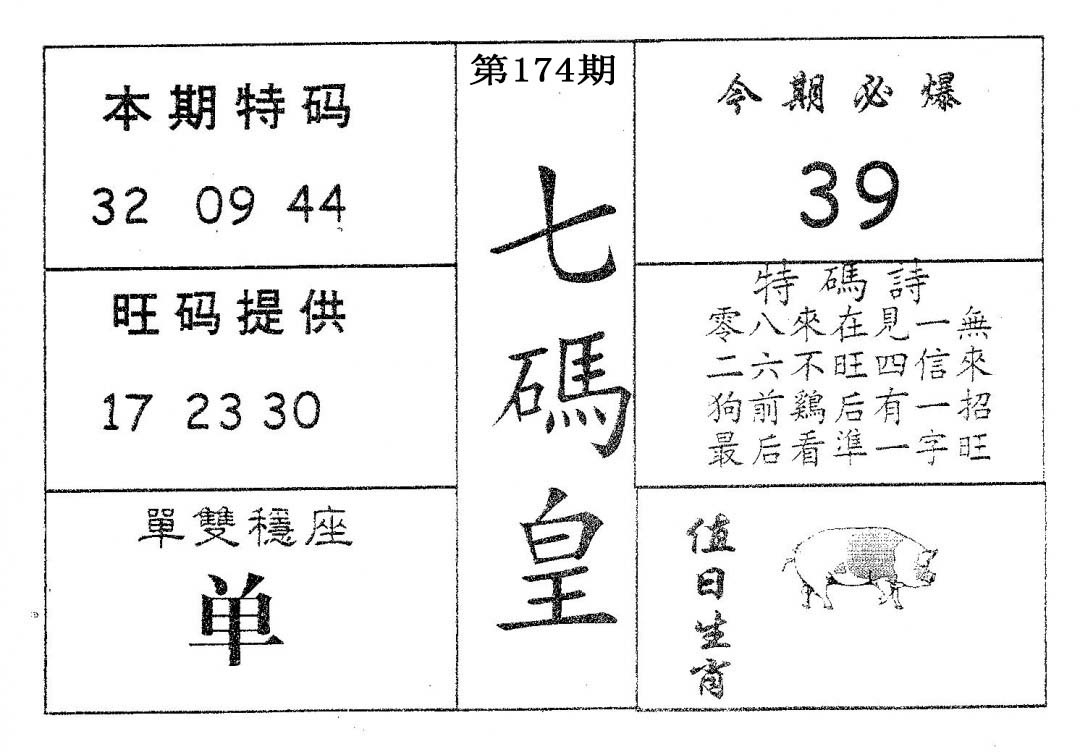 第174期
七碼皇
本期特码
32 09 44
旺码提供
17 23 30
單雙穩座
单
今期必爆
39
特碼詩
零八來在見一無
二六不旺四信來
狗前鷄后有一招
最后看準一字旺
值日生肖